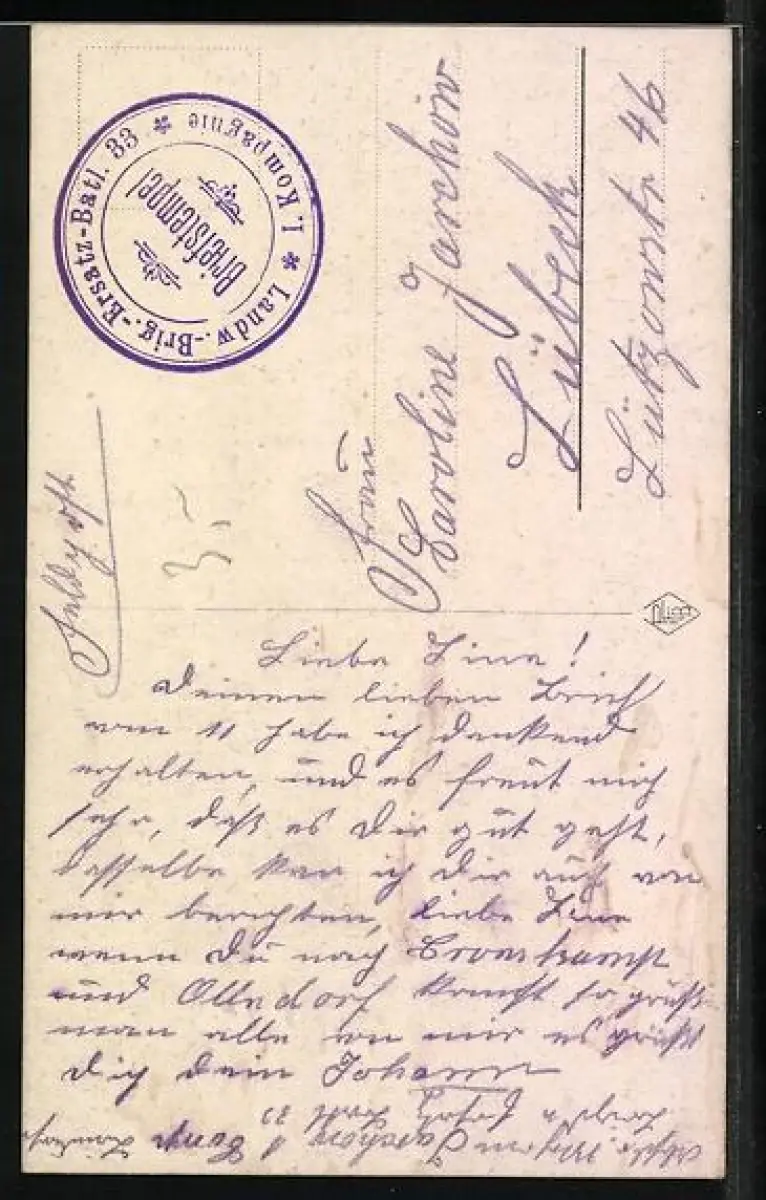 I. Kompagnie * Landw.-Brig.-Ersatz-Batl. 33 *
Briefstempel
Feldpost
3,-
Frau
Caroline Jarchow
Lübeck
Lützowstr 46
Liebe Line!
Deinen lieben Brief
vom 11 habe ich dankend
erhalten, und es freut mich
sehr, daß es Dir gut geht,
dasselbe kan ich Dir auch von
mir berichten, liebe Line
wenn Du nach
und Ollndorf komst so grüß
man alle von mir es grüßt
Dich dein Johann
Jarchow 1 Komp
33